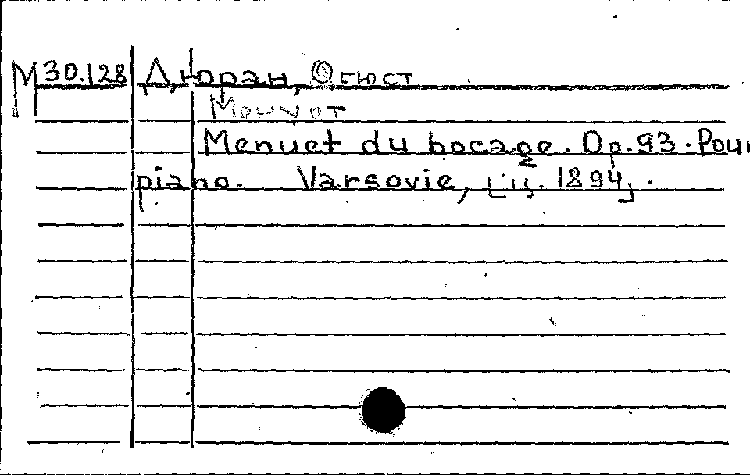 М 30.128 Дюран, Огюст
Menuet du bocage. Op. 93. Pour
piano. Varsovie, [ц. 1894].